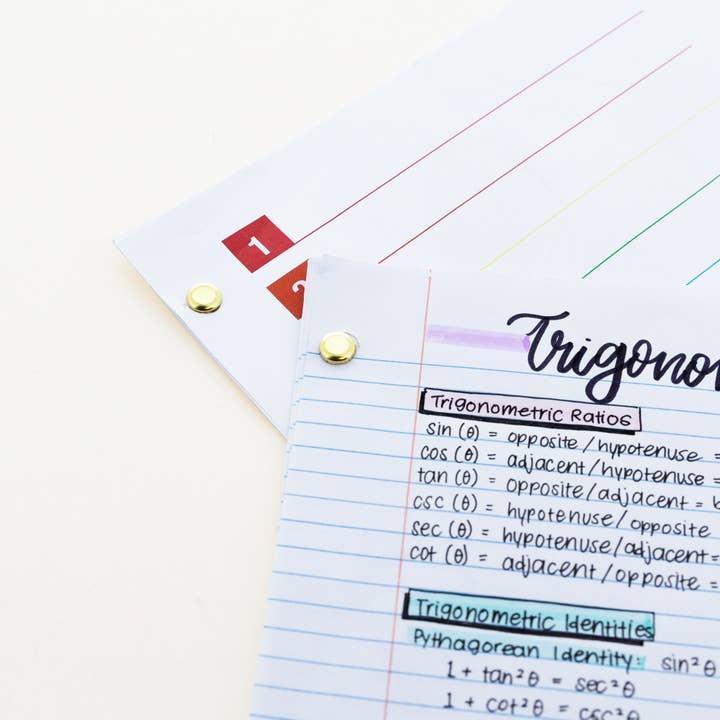 1
2
Trigono
Trigonometric Ratios
sin (θ) = opposite/hypotenuse =
cos (θ) = adjacent/hypotenuse =
tan (θ) = opposite/adjacent = b
csc (θ) = hypotenuse/opposite
sec (θ) = hypotenuse/adjacent =
cot (θ) = adjacent/opposite =
Trigonometric Identities
Pythagorean Identity: sin²θ
1 + tan²θ = sec²θ
1 + cot²θ = csc²θ